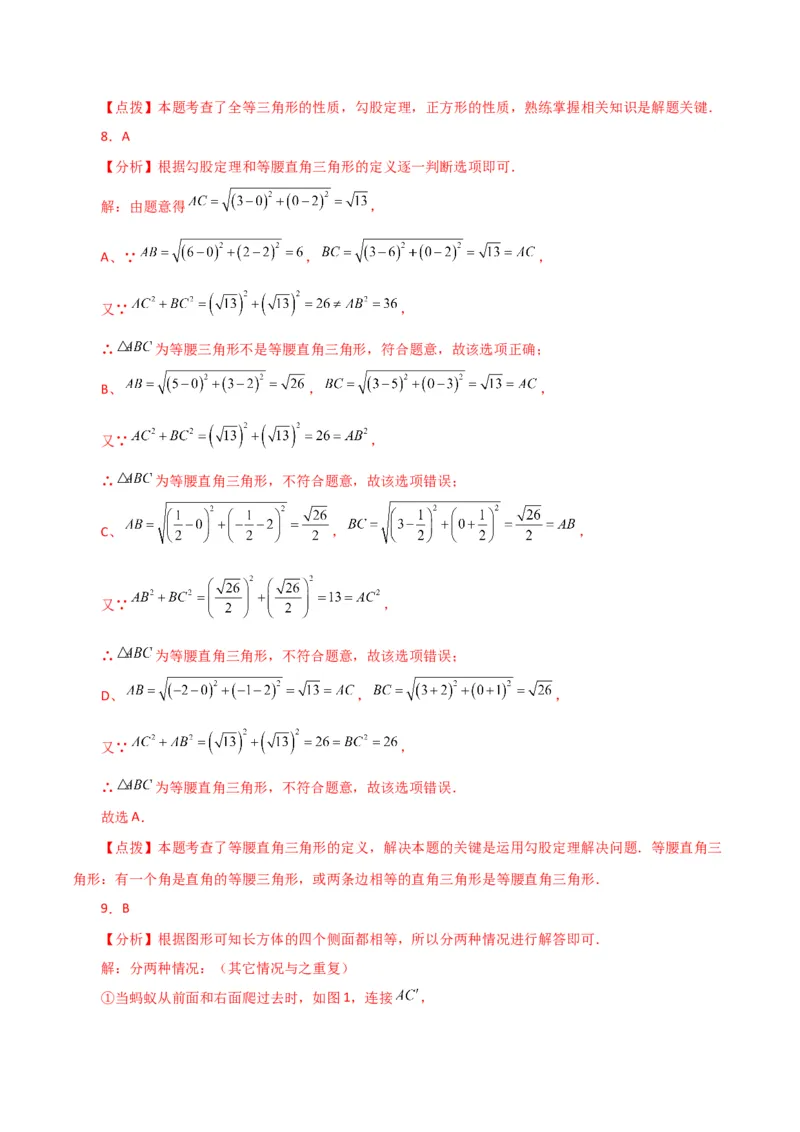 【点拨】本题考查了全等三角形的性质，勾股定理，正方形的性质，熟练掌握相关知识是解题关键．
8．A
【分析】根据勾股定理和等腰直角三角形的定义逐一判断选项即可．
解：由题意得 AC = √((3−0)² + (0−2)²) = √13，
A、∵ AB = √((6−0)² + (2−2)²) = 6，BC = √((3−6)² + (0−2)²) = √13 = AC，
又∵ AC² + BC² = (√13)² + (√13)² = 26 ≠ AB² = 36，
∴ △ABC 为等腰三角形不是等腰直角三角形，符合题意，故该选项正确；
B、 AB = √((5−0)² + (3−2)²) = √26，BC = √((3−5)² + (0−3)²) = √13 = AC，
又∵ AC² + BC² = (√13)² + (√13)² = 26 = AB²，
∴ △ABC 为等腰直角三角形，不符合题意，故该选项错误；
C、 AB = √((1/2−0)² + (−1/2−2)²) = √26/2，BC = √((3−1/2)² + (0+1/2)²) = √26/2 = AB，
又∵ AB² + BC² = (√26/2)² + (√26/2)² = 13 = AC²，
∴ △ABC 为等腰直角三角形，不符合题意，故该选项错误；
D、 AB = √((−2−0)² + (−1−2)²) = √13 = AC，BC = √((3+2)² + (0+1)²) = √26，
又∵ AC² + AB² = (√13)² + (√13)² = 26 = BC² = 26，
∴ △ABC 为等腰直角三角形，不符合题意，故该选项错误．
故选A．
【点拨】本题考查了等腰直角三角形的定义，解决本题的关键是运用勾股定理解决问题．等腰直角三
角形：有一个角是直角的等腰三角形，或两条边相等的直角三角形是等腰直角三角形．
9．B
【分析】根据图形可知长方体的四个侧面都相等，所以分两种情况进行解答即可．
解：分两种情况：（其它情况与之重复）
①当蚂蚁从前面和右面爬过去时，如图1，连接 AC′，